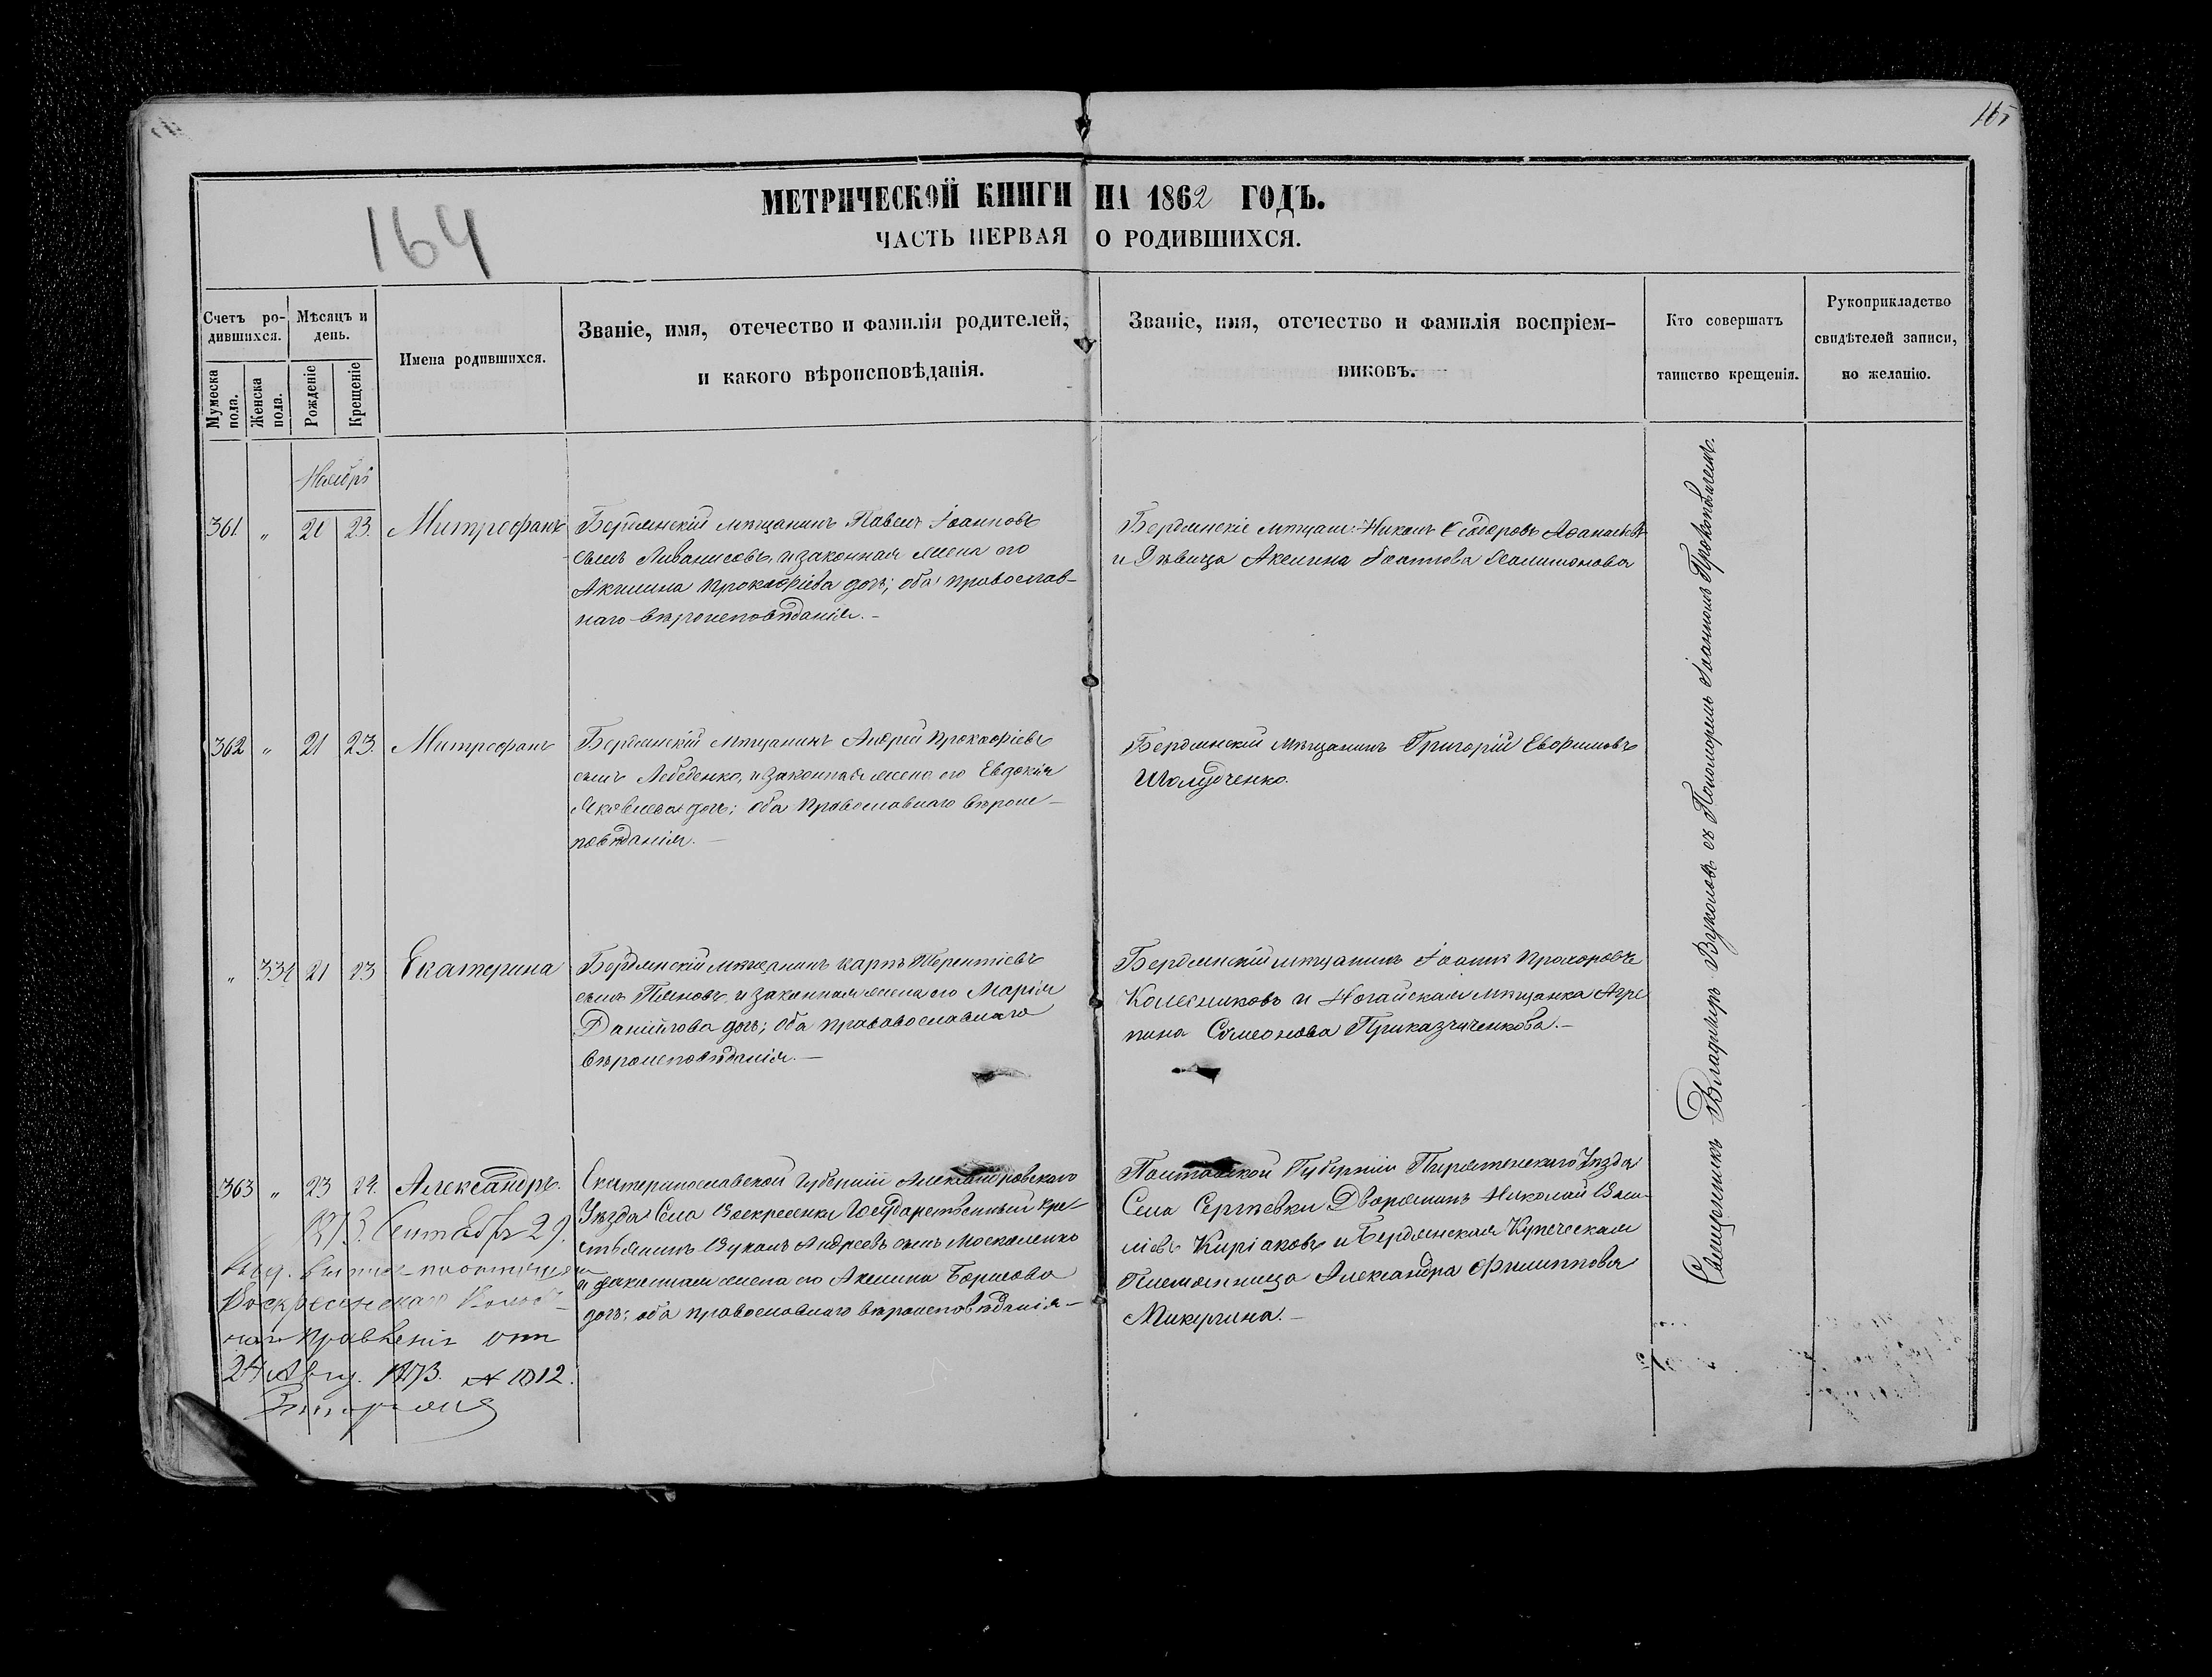 165
МЕТРИЧЕСКОЙ КНИГИ НА 1862 ГОДЪ.
164
ЧАСТЬ ПЕРВАЯ О РОДИВШИХСЯ.
Счетъ ро-
дившихся.
Мужеска пола.
Женска пола.
Мѣсяцъ и
день.
Рожденіе
Крещеніе
Имена родившихся.
Званіе, имя, отечество и фамилія родителей,
и какого вѣроисповѣданія.
Званіе, имя, отечество и фамилія воспріем-
никовъ.
Кто совершатъ
таинство крещенія.
Рукоприкладство
свидѣтелей записи,
по желанію.
Ноябрь
361. " 21 23. Митрофанъ
Бердянскій мѣщанинъ Павелъ Іоанновъ
сынъ, и законная жена его
Акилина Прокофіева дочь; оба православ-
наго вѣроисповѣданія.-
Бердянскіе мѣщане: Никонъ Ѳеодоровъ
и Дѣвица Акилина Іоаннова
362 " 21 23. Митрофанъ
Бердянскій Мѣщанинъ Андрей Прокофіевъ
сынъ Лебеденко, и законная жена его Евдокія
Яковлева дочь; оба Православнаго вѣроис-
повѣданія.—
Бердянскій Мѣщанинъ Григорій Евфимовъ
" 334 21 23 Екатерина
Бердянскій мѣщанинъ Карпъ Терентіевъ
сынъ, и законная жена его Марія
Даніилова дочь; оба православнаго
вѣроисповѣданія.—
Бердянскій мѣщанинъ Іоаннъ Прохоровъ
Колесниковъ и Ногайская мѣщанка Агре
пина Симеонова Приказчиченкова.-
363 " 23 24. Александръ.
Екатеринославской Губерніи Александровскаго
Уѣзда Села Воскресенки Государственный кре-
стьянинъ Вуколъ Андреевъ сынъ Москаленко
и законная жена его Акилина Борисова
дочь; оба православнаго вѣроисповѣданія-
Полтавской Губерніи Пирятинскаго Уѣзда
Села Сергѣевки Дворянинъ Николай Васи-
ліевъ Киріаковъ и Бердянская Купеческая
Племянница Александра Филиппова
Микулина.-
1873. Сентября 29.
Воскресенскаго
наго Правленія отъ
24 Авг. 1873. № 1012.
Священникъ Владиміръ Вуколовъ съ Пономаремъ Іоанномъ